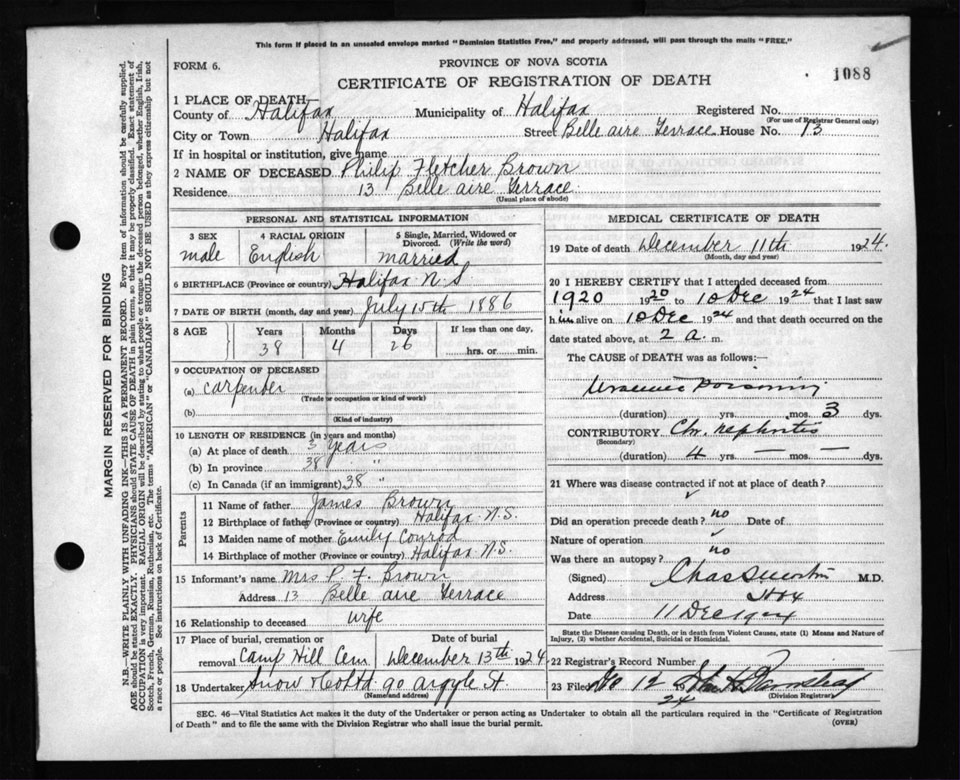 This form if placed in an unsealed envelope marked "Dominion Statistics Free," and properly addressed, will pass through the mails "FREE."
FORM 6.
PROVINCE OF NOVA SCOTIA
CERTIFICATE OF REGISTRATION OF DEATH
1088
1 PLACE OF DEATH—
County of Halifax Municipality of Halifax Registered No.
(For use of Registrar General only)
City or Town Halifax Street Belle aire Terrace House No. 13
If in hospital or institution, give name
2 NAME OF DECEASED Philip Fletcher Brown
Residence 13 Belle aire Terrace
(Usual place of abode)
PERSONAL AND STATISTICAL INFORMATION
3 SEX 4 RACIAL ORIGIN 5 Single, Married, Widowed or Divorced. (Write the word)
male English married
6 BIRTHPLACE (Province or country) Halifax N.S.
7 DATE OF BIRTH (month, day and year) July 15th 1886
8 AGE Years Months Days If less than one day,
38 4 26 hrs. or min.
9 OCCUPATION OF DECEASED
(a) carpenter
(Trade or occupation or kind of work)
(b)
(Kind of industry)
10 LENGTH OF RESIDENCE (in years and months)
(a) At place of death 3 years
(b) In province 38 "
(c) In Canada (if an immigrant) 38 "
Parents
11 Name of father James Brown
12 Birthplace of father (Province or country) Halifax N.S.
13 Maiden name of mother Emily Conrod
14 Birthplace of mother (Province or country) Halifax N.S.
15 Informant's name Mrs P. F. Brown
Address 13 Belle aire Terrace
16 Relationship to deceased wife
17 Place of burial, cremation or removal Camp Hill Cem Date of burial December 13th 1924
18 Undertaker Snow & Co Ltd 90 Argyle St.
(Name and address)
MEDICAL CERTIFICATE OF DEATH
19 Date of death December 11th 1924.
(Month, day and year)
20 I HEREBY CERTIFY that I attended deceased from
1920 1920 to 10 Dec 1924 that I last saw
him alive on 10 Dec 1924 and that death occurred on the
date stated above, at 2 a. m.
The CAUSE of DEATH was as follows:—
Uraemic Poisoning
(duration) yrs. mos. 3 dys.
CONTRIBUTORY Chr. nephritis
(Secondary)
(duration) 4 yrs. — mos. — dys.
21 Where was disease contracted if not at place of death?
Did an operation precede death? no Date of
Nature of operation
Was there an autopsy? no
(Signed) M.D.
Address Hfx
Date 11 Dec 1924
State the Disease causing Death, or in death from Violent Causes, state (1) Means and Nature of Injury, (2) whether Accidental, Suicidal or Homicidal.
22 Registrar's Record Number
23 Filed Dec 12 1924
(Division Registrar)
SEC. 46—Vital Statistics Act makes it the duty of the Undertaker or person acting as Undertaker to obtain all the particulars required in the "Certificate of Registration
of Death" and to file the same with the Division Registrar who shall issue the burial permit.
(OVER)
MARGIN RESERVED FOR BINDING
N.B.—WRITE PLAINLY WITH UNFADING INK—THIS IS A PERMANENT RECORD. Every item of information should be carefully supplied.
AGE should be stated EXACTLY. PHYSICIANS should STATE CAUSE OF DEATH in plain terms, so that it may be properly classified. Exact statement of
OCCUPATION is very important. RACIAL ORIGIN will be described by stating to what people or tongue the deceased person belonged, whether English, Irish,
Scotch, French, German, Russian, Ruthenian, etc. The terms "AMERICAN" or "CANADIAN" SHOULD NOT BE USED as they express citizenship but not
a race or people. See instructions on back of Certificate.